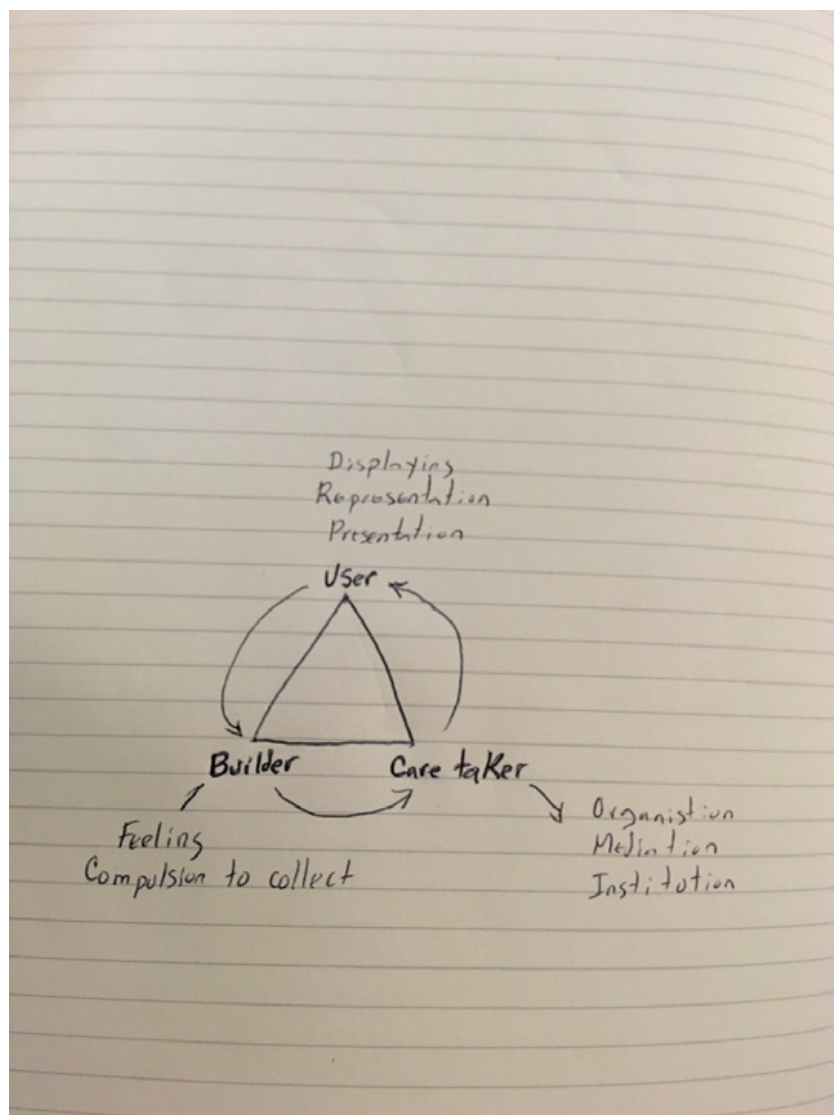 Displaying
Representation
Presentation
User
Builder
Care taker
Feeling
Compulsion to collect
Organistion
Mediation
Institution